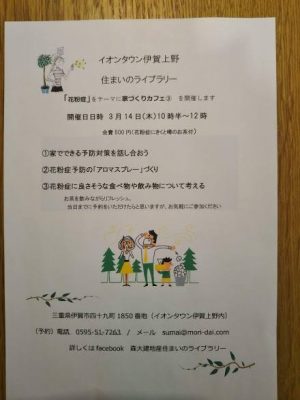 イオンタウン伊賀上野
住まいのライブラリー
「花粉症」をテーマに家づくりカフェ③ を開催します
開催日日時 3月14日(木)10時半~12時
会費500円(花粉症にきくと噂のお茶付)
①家でできる予防対策を話し合おう
②花粉症予防の「アロマスプレー」づくり
③花粉症に良さそうな食べ物や飲み物について考える
お茶を飲みながらリフレッシュ。
当日までに予約をいただけたらと思いますが、お気軽にご参加ください
三重県伊賀市四十九町1850番地(イオンタウン伊賀上野内)
(予約)電話 0595-51-7263 / メール sumai@mori-dai.com
詳しくはfacebook 森大建地産住まいのライブラリー